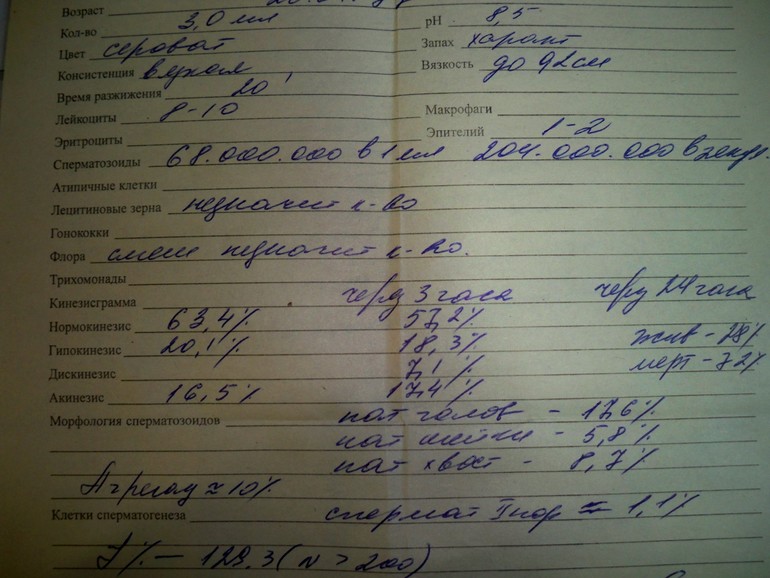 Возраст
Кол-во 3,0 мл pH 8,5
Цвет сероват Запах характ
Консистенция вязкая Вязкость до 0,2 см
Время разжижения 20'
Лейкоциты 8-10 Макрофаги
Эритроциты Эпителий 1-2
Сперматозоиды 68.000.000 в 1 мл 204.000.000 в
Атипичные клетки
Лецитиновые зерна незначит к-во
Гонококки
Флора смеш незначит к-во.
Трихомонады
Кинезиграмма через 3 часа через 24 часа
Нормокинезис 63,4% 57,2%
Гипокинезис 20,1% 18,3% жив - 28%
Дискинезис 7,1% мерт - 72%
Акинезис 16,5% 17,4%
Морфология сперматозоидов пат голов - 17,6%
пат шейки - 5,8%
пат хвост - 8,7%
Агрегац ≈ 10%
Клетки сперматогенеза спермат I пор ≈ 1,1%
129.3 (N > 200)